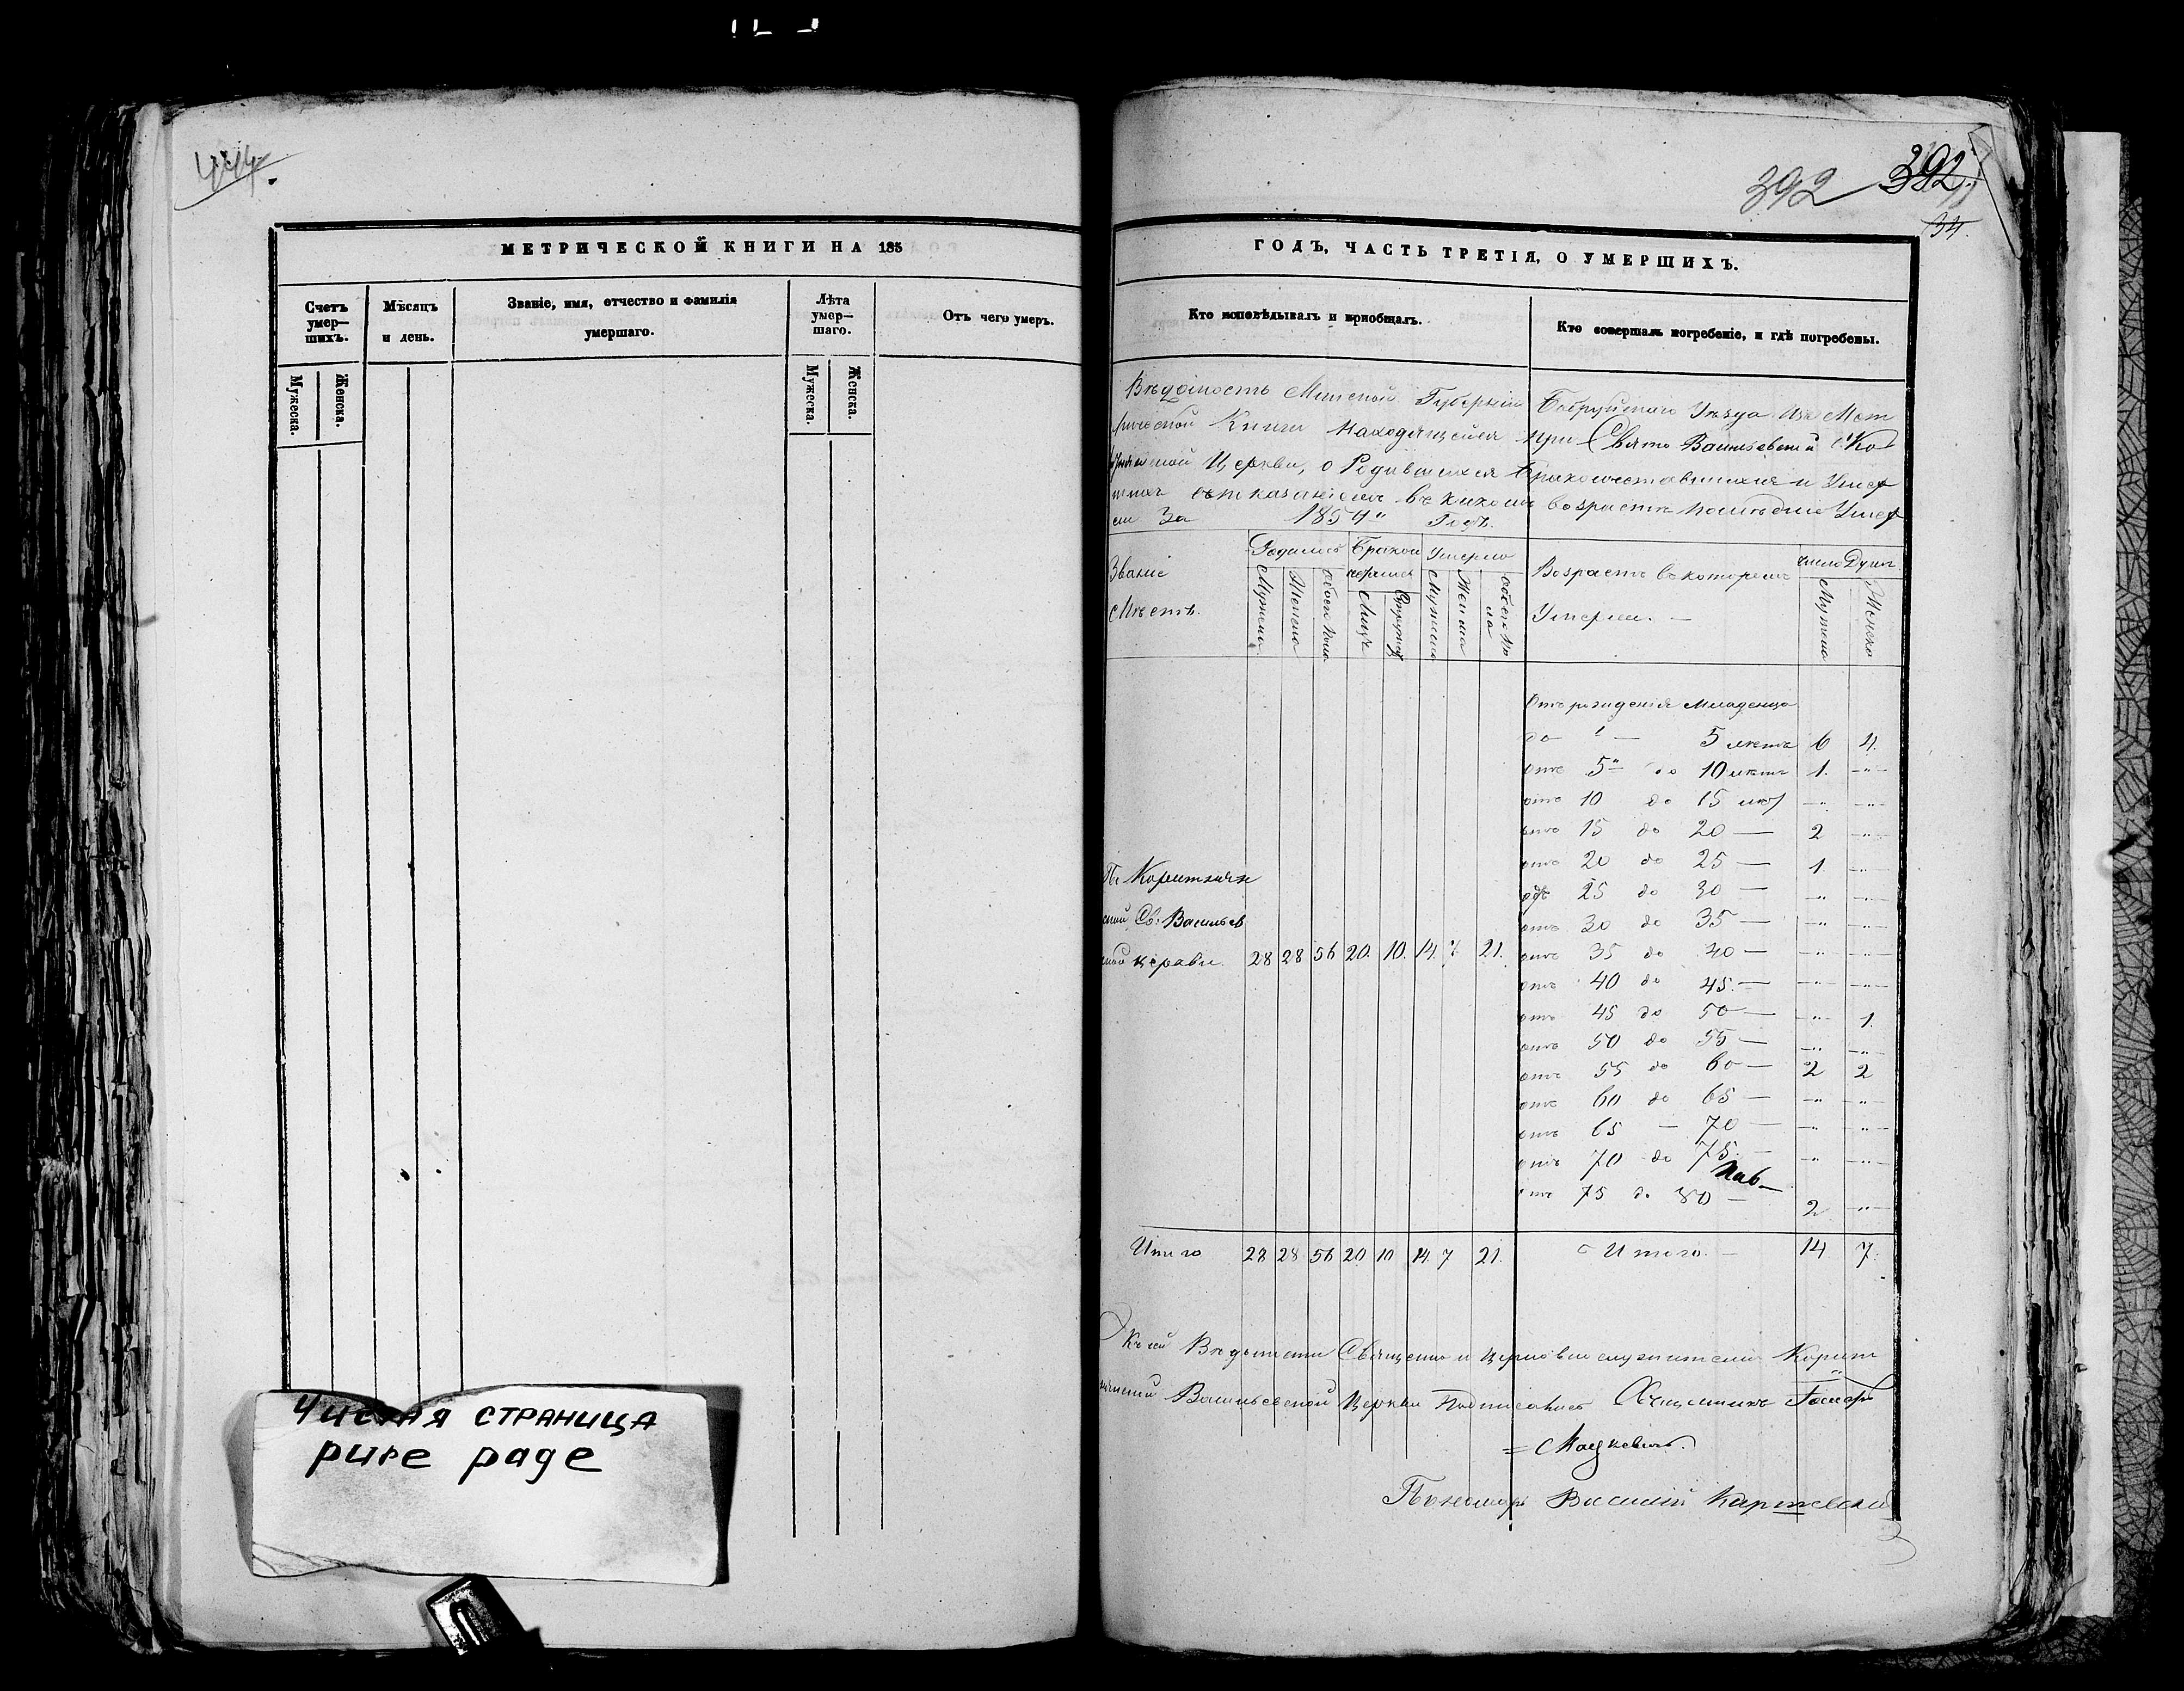 444.
МЕТРИЧЕСКОЙ КНИГИ НА 185
Счетъ умер—шихъ.
Мужеска.
Женска.
Мѣсяцъ и день.
Званіе, имя, отчество и фамилія умершаго.
Лѣта умер—шаго.
Мужеска.
Женска.
Отъ чего умеръ.
Чистая страница
pure page
392 392
34.
ГОДЪ, ЧАСТЬ ТРЕТІЯ, О УМЕРШИХЪ.
Кто исповѣдывалъ и пріобщалъ.
Кто совершалъ погребеніе, и гдѣ погребены.
Вѣдомость Минской Губерніи Бобруйского Уѣзда Изъ Мет
рической Книги Находящейся при Свято Васильевской Ко
Церкви, о Родившихся Бракосочетавшихся и Умер
шихъ съ показаніемъ въ какомъ возрастѣ послѣдніе Умер
ли За 1854" Годъ.
Званіе Мѣстъ.
Родилось
Мужеска
Женска
Обоего пола
Бракомъ
Лицъ
Супружествъ
Умерло
Мужеска
Женска
Обоего по ла
Возрастъ въ которомъ Умерли. —
Число Душъ
Мужеска
Женска
Отъ рожденія младенца
до — 5 лѣтъ 6 4.
отъ 5" до 10 лѣтъ 1. —"—
отъ 10 до 15 лѣт —"— —"—
отъ 15 до 20 — 2 —"—
отъ 20 до 25 — 1 —"—
отъ 25 до 30 — —"— —"—
отъ 30 до 35 — —"— —"—
отъ 35 до 40 — —"— —"—
отъ 40 до 45. — —"— —"—
отъ 45 до 50 — —"— 1.
отъ 50 до 55 — —"— —"—
отъ 55 до 60 — 2 2
отъ 60 до 65 — —"— —"—
отъ 65 — 70 — —"— —"—
отъ 70 до 75. — —"— —"—
отъ 75 до 80 — 2 —"—
ской Св: Васильев
ской церкви. 28 28 56 20. 10. 14. 7 21.
Итого 28 28 56 20 10 14 7 21.
Итого. — 14 7.
Къ сей Вѣдомости Священно и церковнослужители
Васильевской Церкви Подписались Священникъ
= Мацкевичъ.
Пономарь Василій